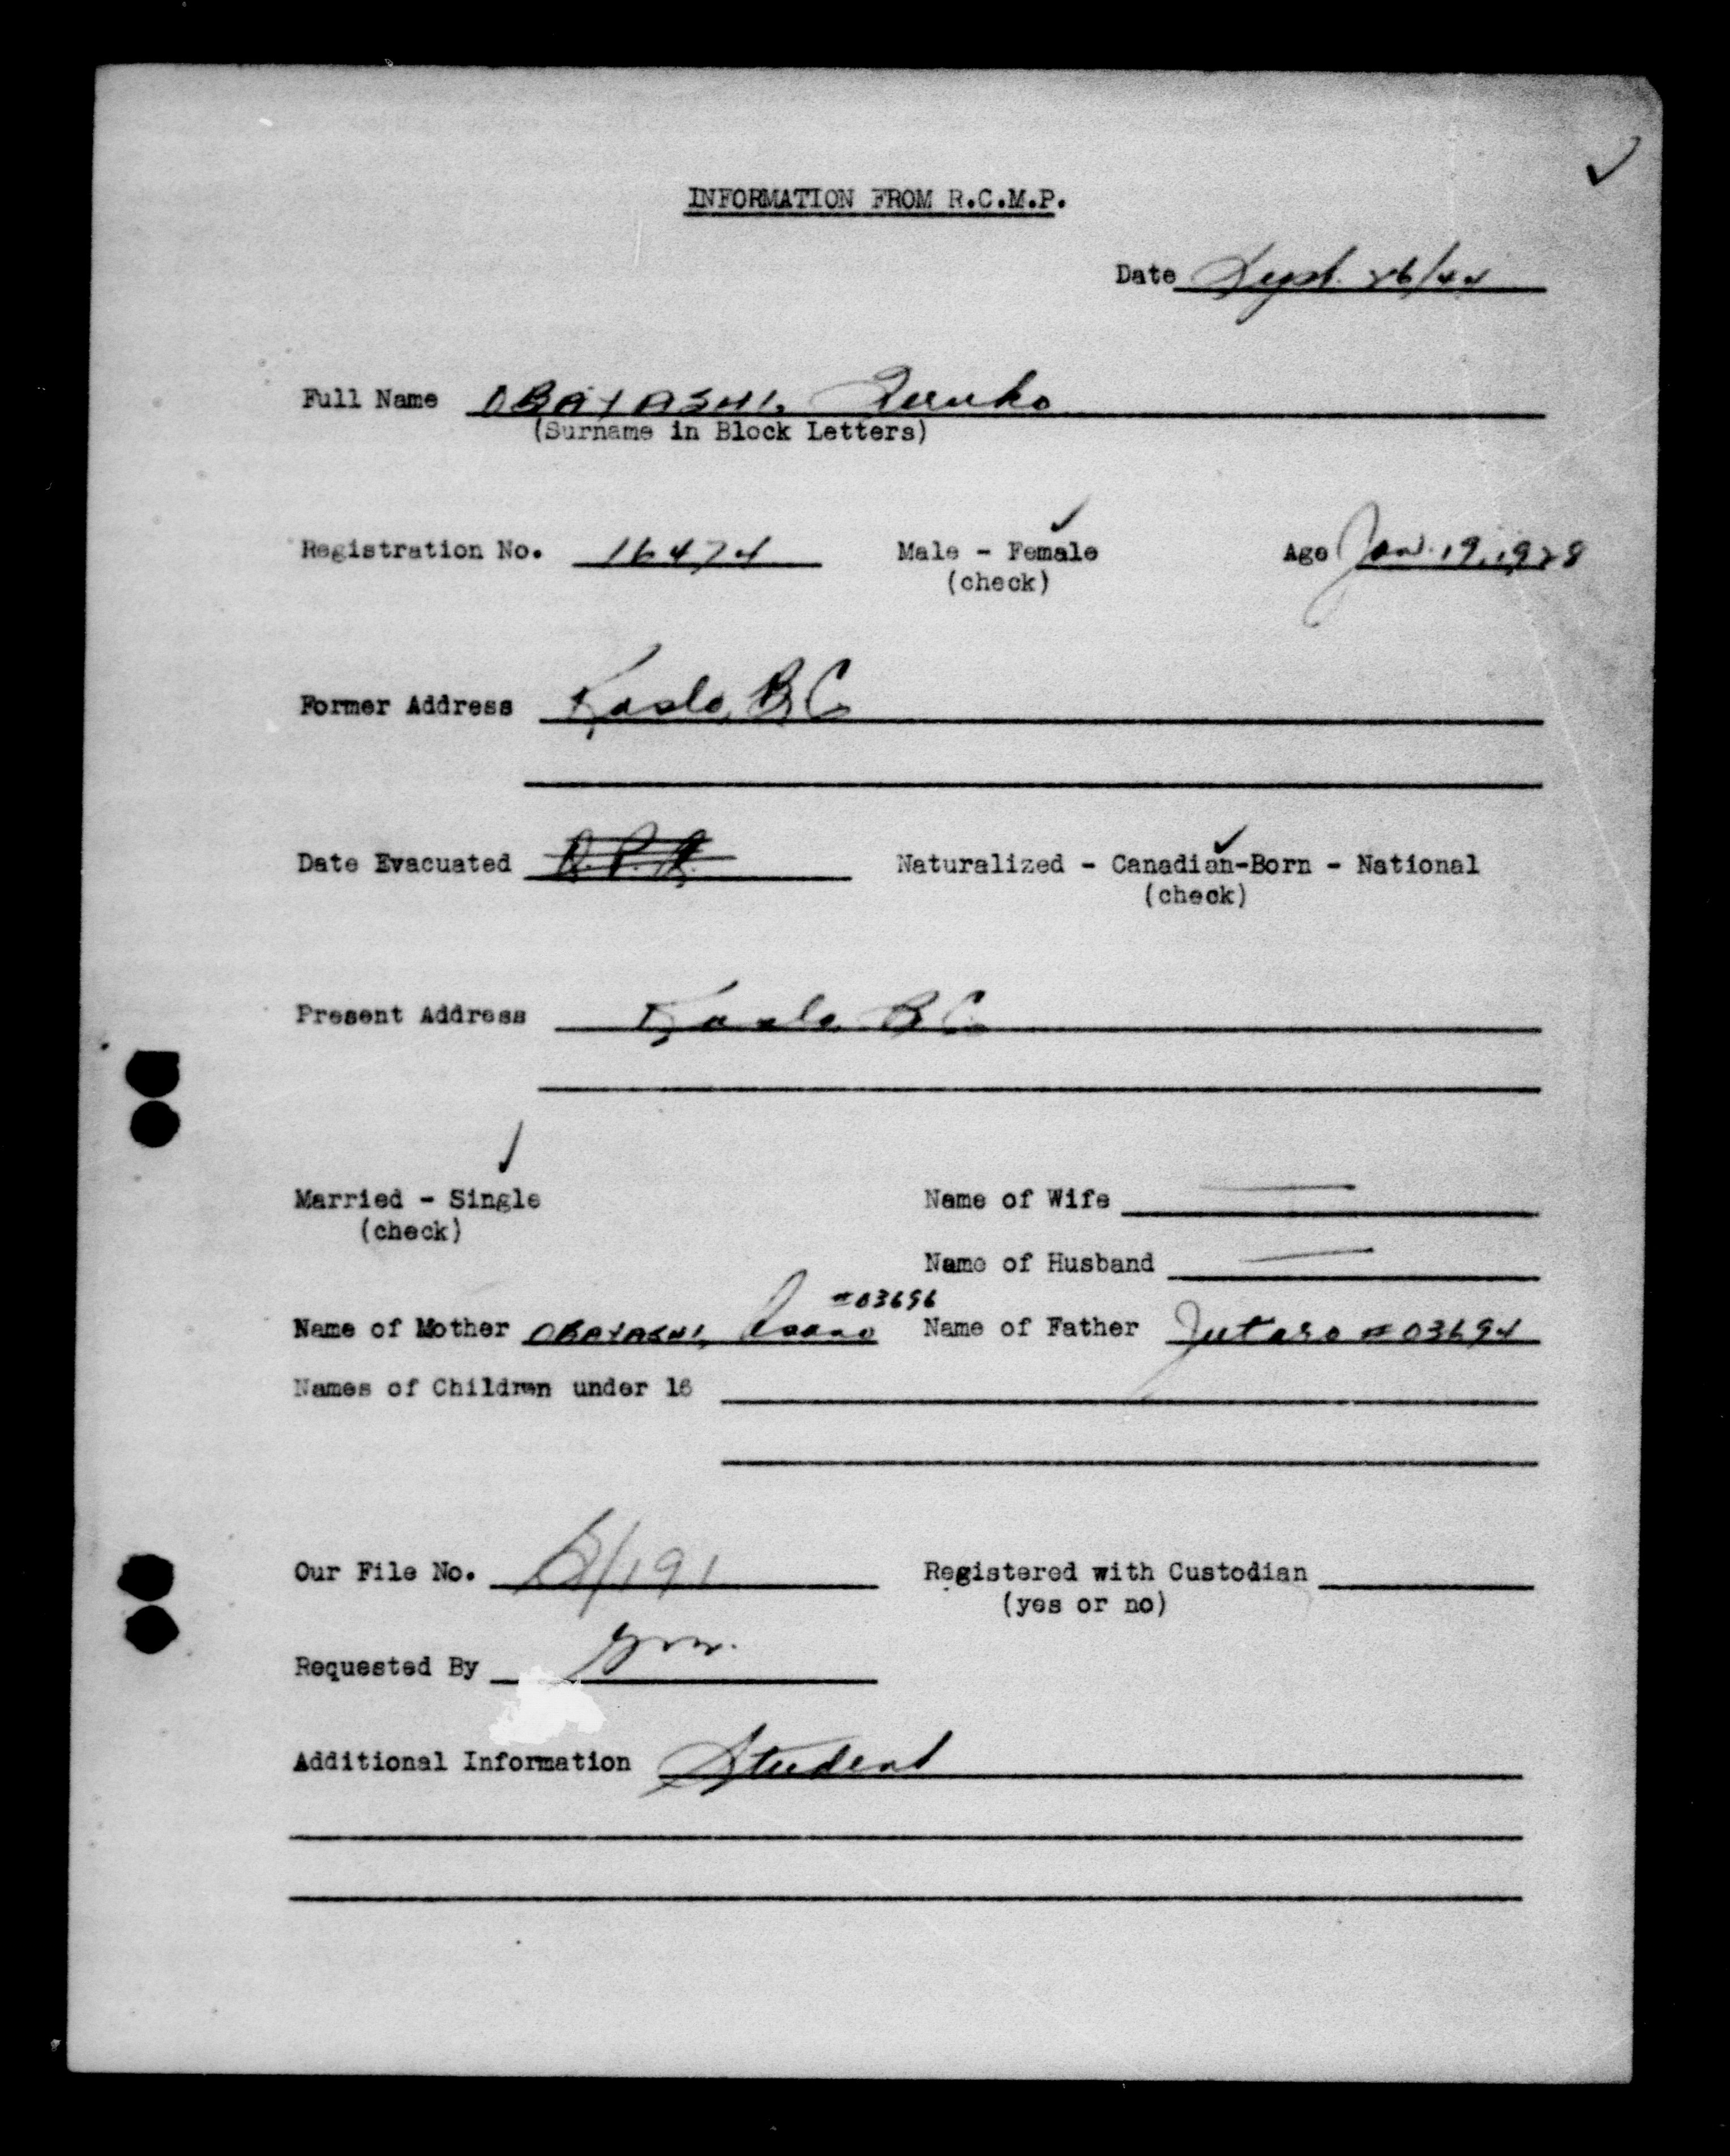 INFORMATION FROM R.C.M.P.
Date Sept. 26/44
Full Name OBAYASHI,
(Surname in Block Letters)
Registration No. 16474 Male - Female Age Jan. 19, 1928
(check)
Former Address Kaslo, BC
Date Evacuated Naturalized - Canadian-Born - National
(check)
Present Address Kaslo, BC
Married - Single Name of Wife
(check)
Name of Husband
#03696
Name of Mother OBAYASHI, Name of Father Jutaro #03694
Names of Children under 16
Our File No. Registered with Custodian
(yes or no)
Requested By
Additional Information Student